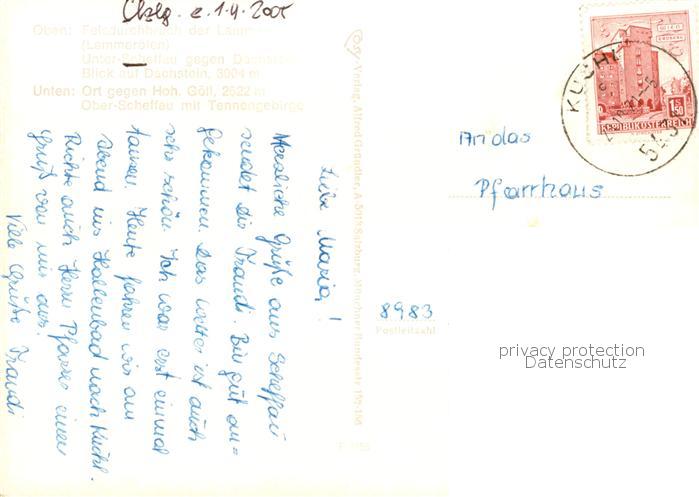 Oben: Felsdurchbruch der Lammer
(Lammeröfen)
Unter-Scheffau gegen Dachstein
Blick auf Dachstein, 3004 m
Unten: Ort gegen Hoh. Göll, 2522 m
Ober-Scheffau mit Tennengebirge
Cosy-Verlag, Alfred Gründler, A 5013 Salzburg, Münchner Bundesstr.
Liebe Maria!
Herzliche Grüße aus Scheffau
sendet dir Traudi. Bin gut an-
gekommen. Das Wetter ist auch
sehr schön. Ich war erst einmal
tanzen. Heute fahren wir am
Abend ins Hallenbad nach Kuchl.
Richte auch Herrn Pfarrer einen
Gruß von mir aus.
Viele Grüße Traudi
REPUBLIK ÖSTERREICH
1.50
KUCHL
An das
Pfarrhaus
8983
Postleitzahl
privacy protection
Datenschutz